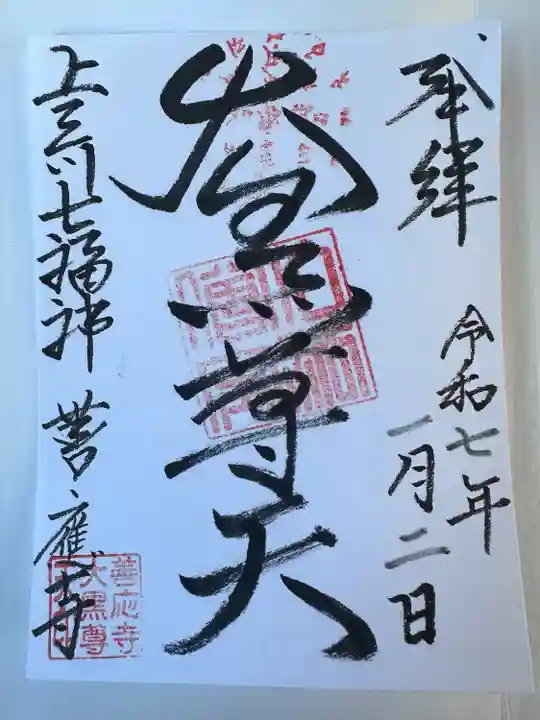 奉拝
令和七年
一月二日
大黒尊天
上三川七福神 善應寺
善応寺
大黒尊